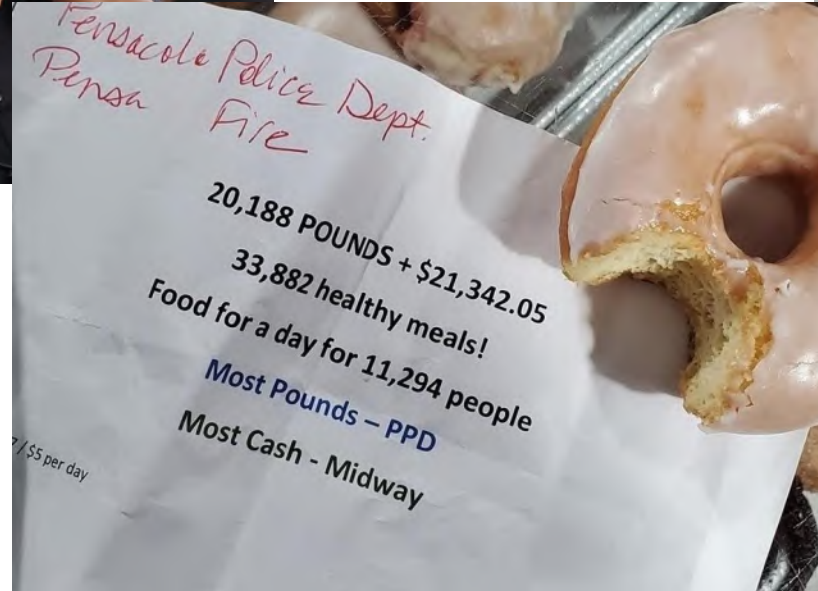 Pensacola Police Dept.
Pensa Fire
20,188 POUNDS + $21,342.05
33,882 healthy meals!
Food for a day for 11,294 people
Most Pounds – PPD
Most Cash - Midway
/ $5 per day